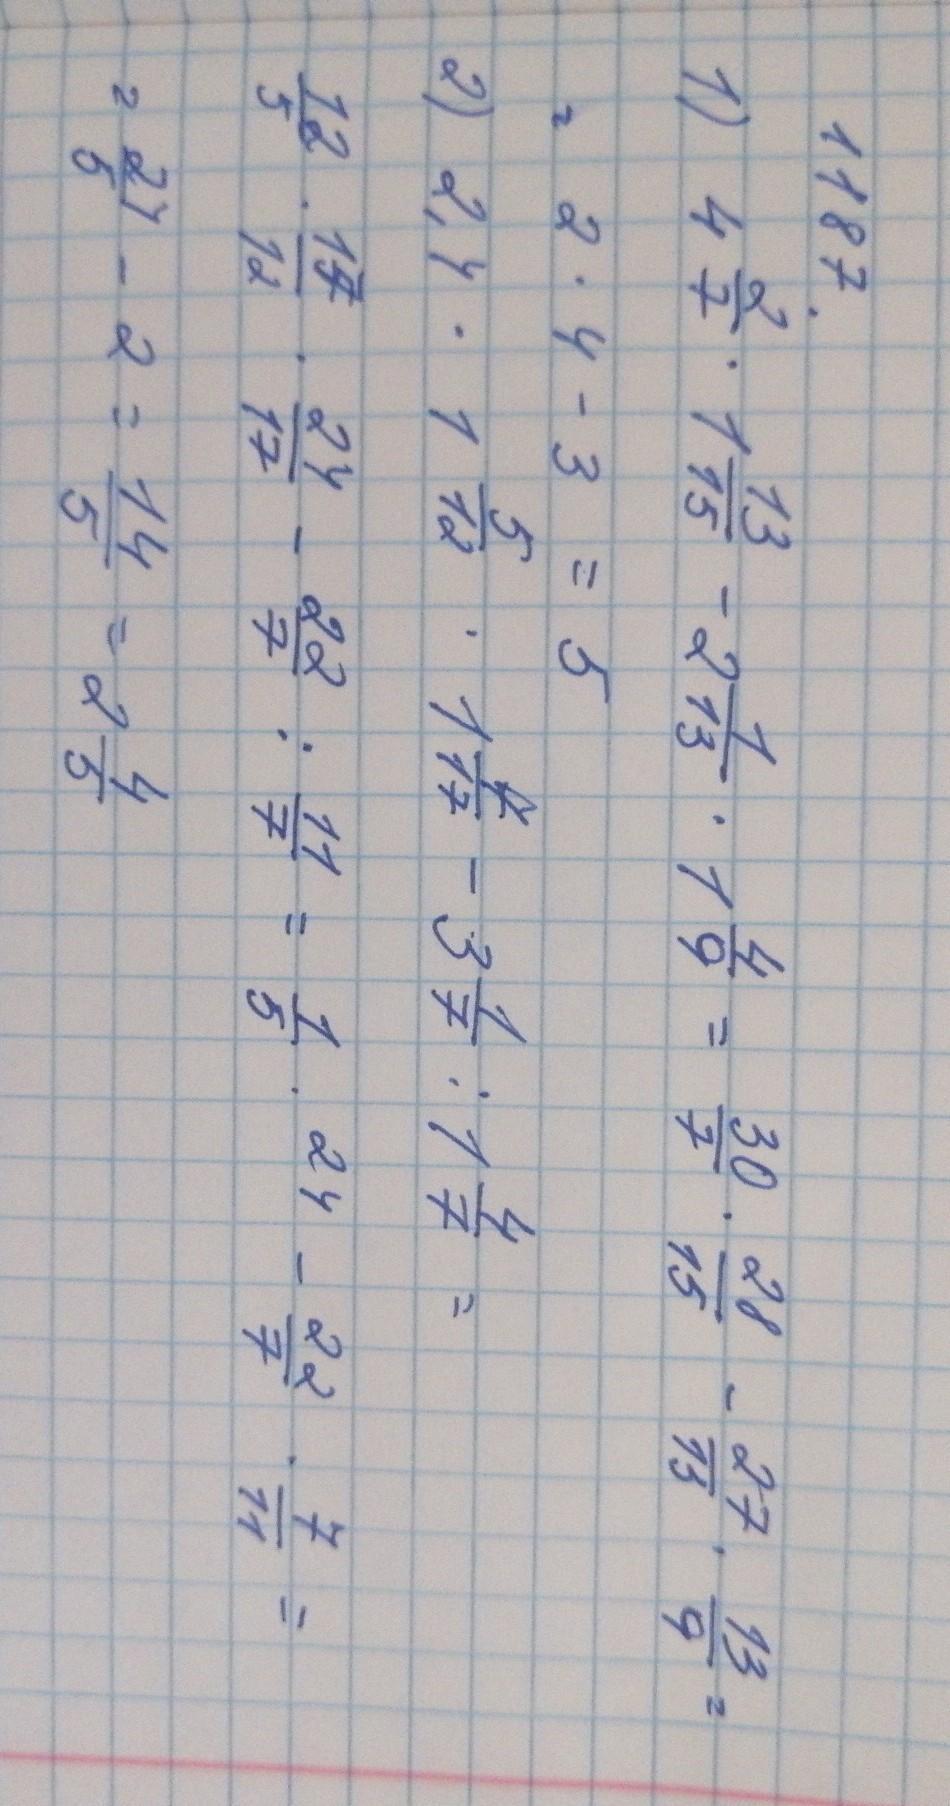 1187.
1) 4 2/7 · 1 13/15 - 2 1/13 · 1 4/9 = 30/7 · 28/15 - 27/13 · 13/9 =
= 2 · 4 - 3 = 5
2) 2,4 · 1 5/12 · 1 7/17 - 3 1/7 : 1 4/7 =
12/5 · 17/12 · 24/17 - 22/7 : 11/7 = 1/5 · 24 - 22/7 · 7/11 =
= 24/5 - 2 = 14/5 = 2 4/5